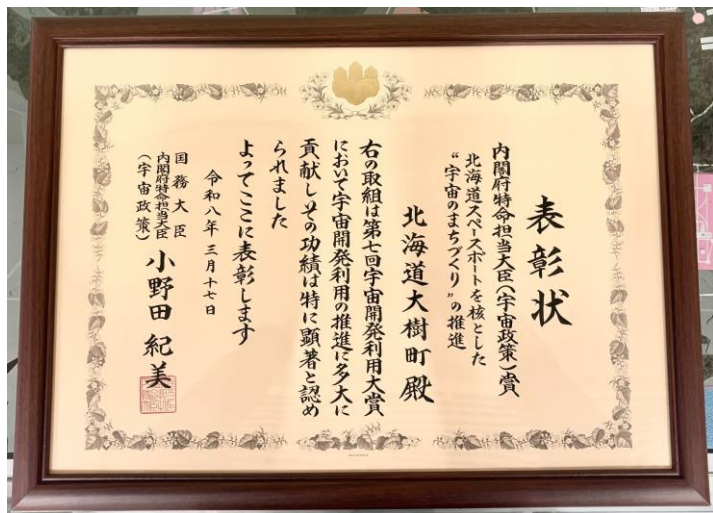 表彰状
内閣府特命担当大臣（宇宙政策）賞
北海道スペースポートを核とした
“宇宙のまちづくり”の推進
北海道大樹町殿
右の取組は第七回宇宙開発利用大賞
において宇宙開発利用の推進に多大に
貢献しその功績は特に顕著と認め
られました
よってここに表彰します
令和八年三月十七日
国務大臣
内閣府特命担当大臣
（宇宙政策）
小野田紀美